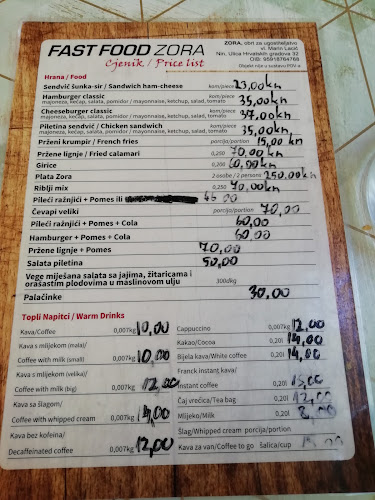 FAST FOOD ZORA
Cjenik / Price list
ZORA, obrt za ugostiteljstvo
vl. Marin Lacić
Nin, Ulica Hrvatskih gradova 32
OIB: 95918764768
Objekt nije u sustavu PDV-a
Hrana / Food
Sendvič šunka-sir / Sandwich ham-cheese kom/piece 23,00kn
Hamburger classic kom/piece 35,00kn
majoneza, kečap, salata, pomidor / mayonnaise, ketchup, salad, tomato
Cheeseburger classic kom/piece 37,00kn
majoneza, kečap, salata, pomidor / mayonnaise, ketchup, salad, tomato
Piletina sendvič / Chicken sandwich kom/piece 35,00kn
majoneza, kečap, salata, pomidor / mayonnaise, ketchup, salad, tomato
Prženi krumpir / French fries porcija/portion 15,00 kn
Pržene lignje / Fried calamari 0,200 70,00 kn
Girice 0,200 60,00 kn
Plata Zora 2 osobe / 2 persons 250.00kn
Riblji mix 0,250 70,00kn
Pileći ražnjići + Pomes ili 66 00
Čevapi veliki porcija/portion 70,00
Pileći ražnjići + Pomes + Cola 60,00
Hamburger + Pomes + Cola 60,00
Pržene lignje + Pomes 70,00
Salata piletina 50,00
Vege miješana salata sa jajima, žitaricama i
orašastim plodovima u maslinovom ulju 300dkg
Palačinke 30,00
Topli Napitci / Warm Drinks
Kava/Coffee 0,007kg 10,00
Kava s mlijekom (mala)/
Coffee with milk (small) 0,007kg 10,00
Kava s mlijekom (velika)/
Coffee with milk (big) 0,007kg 12,00
Kava sa šlagom/
Coffee with whipped cream 0,007kg 14,00
Kava bez kofeina/
Decaffeinated coffee 0,007kg 12,00
Cappuccino 0,007kg 12,00
Kakao/Cocoa 0,20l 14,00
Bijela kava/White coffee 0,20l 14,00
Franck instant kava/
Instant coffee 0,20l 15,00
Čaj vrećica/Tea bag 0,20l 12,00
Mlijeko/Milk 0,20l 8,00
Šlag/Whipped cream porcija/portion
Kava za van/Coffee to go šalica/cup